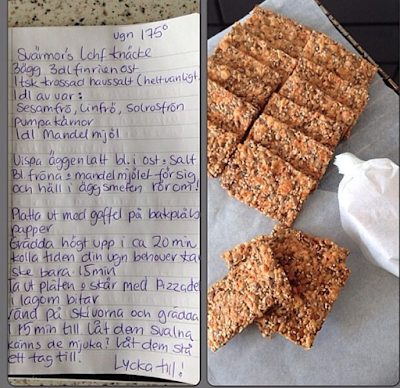 ugn 175°
Svärmor's lchf knäcke
3ägg 3dl finriven ost
1tsk krossad havssalt (helt vanligt.
1dl av var:
Sesamfrö, Linfrö, Solrosfrön
Pumpakärnor
1dl Mandelmjöl
Vispa äggen lätt bl.i ost + salt
Bl fröna + mandelmjölet för sig
och häll i äggsmeten rör om!
Platta ut med gaffel på bakplåts
papper
Grädda högt upp i ca 20 min
kolla tiden din ugn behöver ka
ske bara 15min
Ta ut plåten + skär med Pizzade
i lagom bitar
Vänd på skivorna och grädda
i 15 min till Låt dem svalna
känns de mjuka? Låt dem stå
ett tag till.
Lycka till!